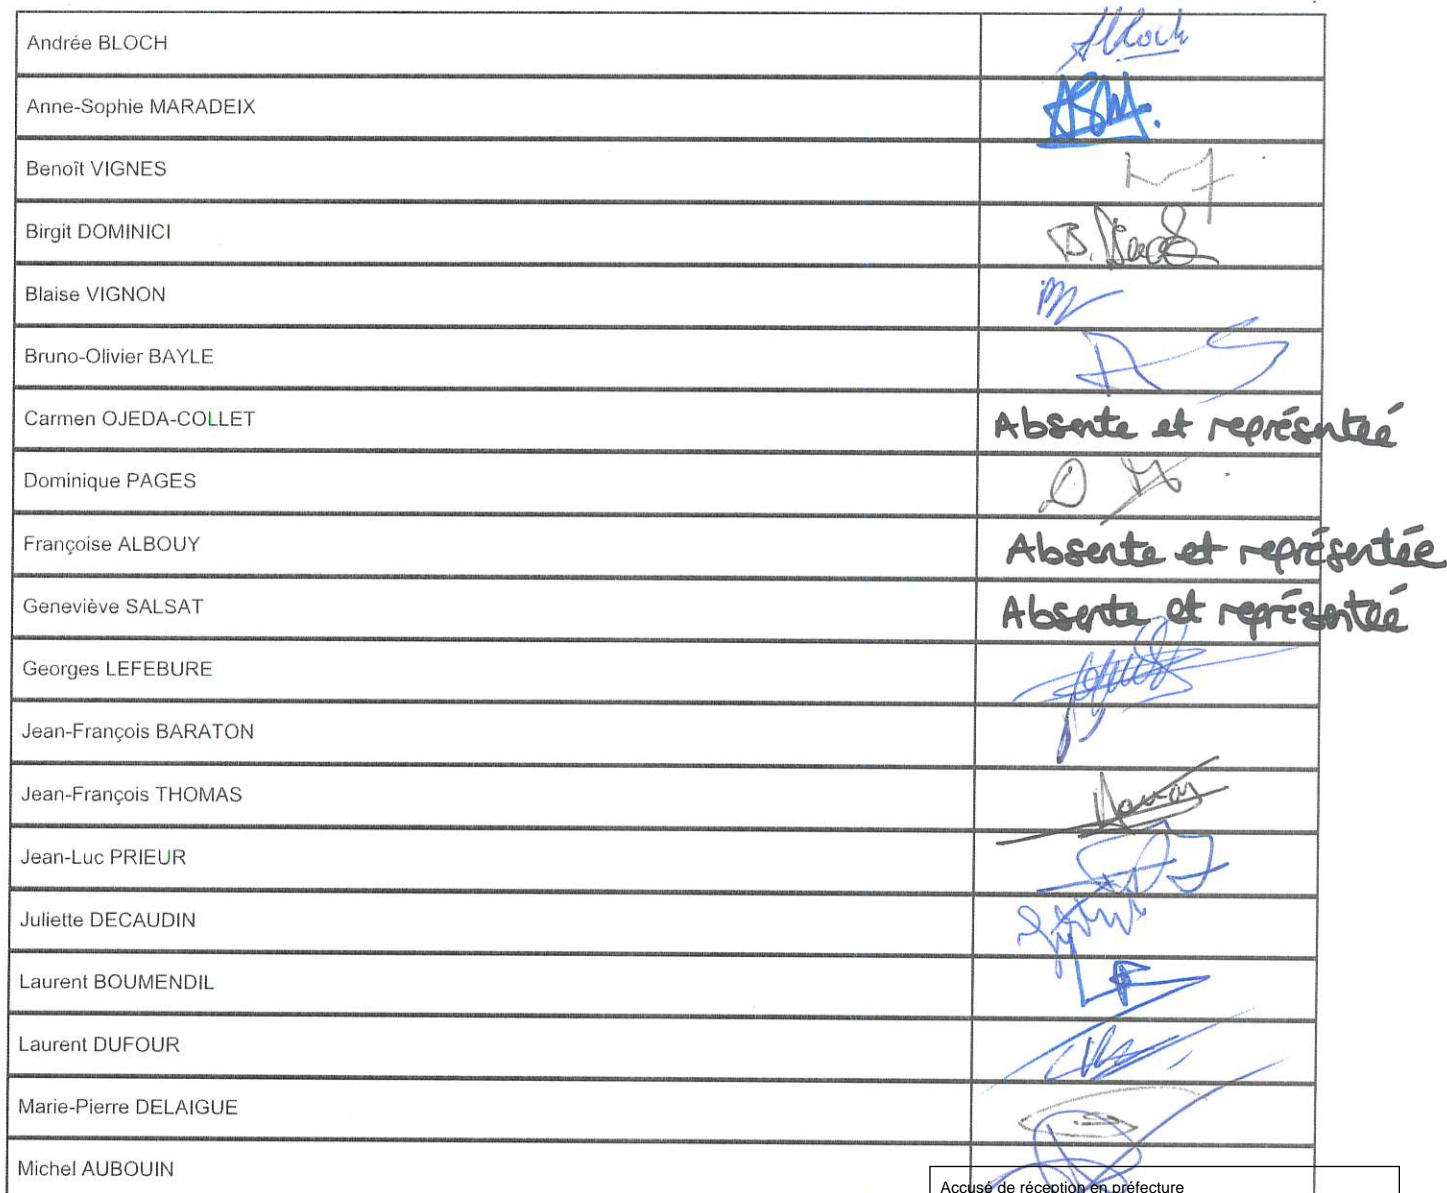 Andrée BLOCH
Anne-Sophie MARADEIX
Benoît VIGNES
Birgit DOMINICI
Blaise VIGNON
Bruno-Olivier BAYLE
Carmen OJEDA-COLLET Absente et représentée
Dominique PAGES
Françoise ALBOUY Absente et représentée
Geneviève SALSAT Absente et représentée
Georges LEFEBURE
Jean-François BARATON
Jean-François THOMAS
Jean-Luc PRIEUR
Juliette DECAUDIN
Laurent BOUMENDIL
Laurent DUFOUR
Marie-Pierre DELAIGUE
Michel AUBOUIN
Accusé de réception en préfecture